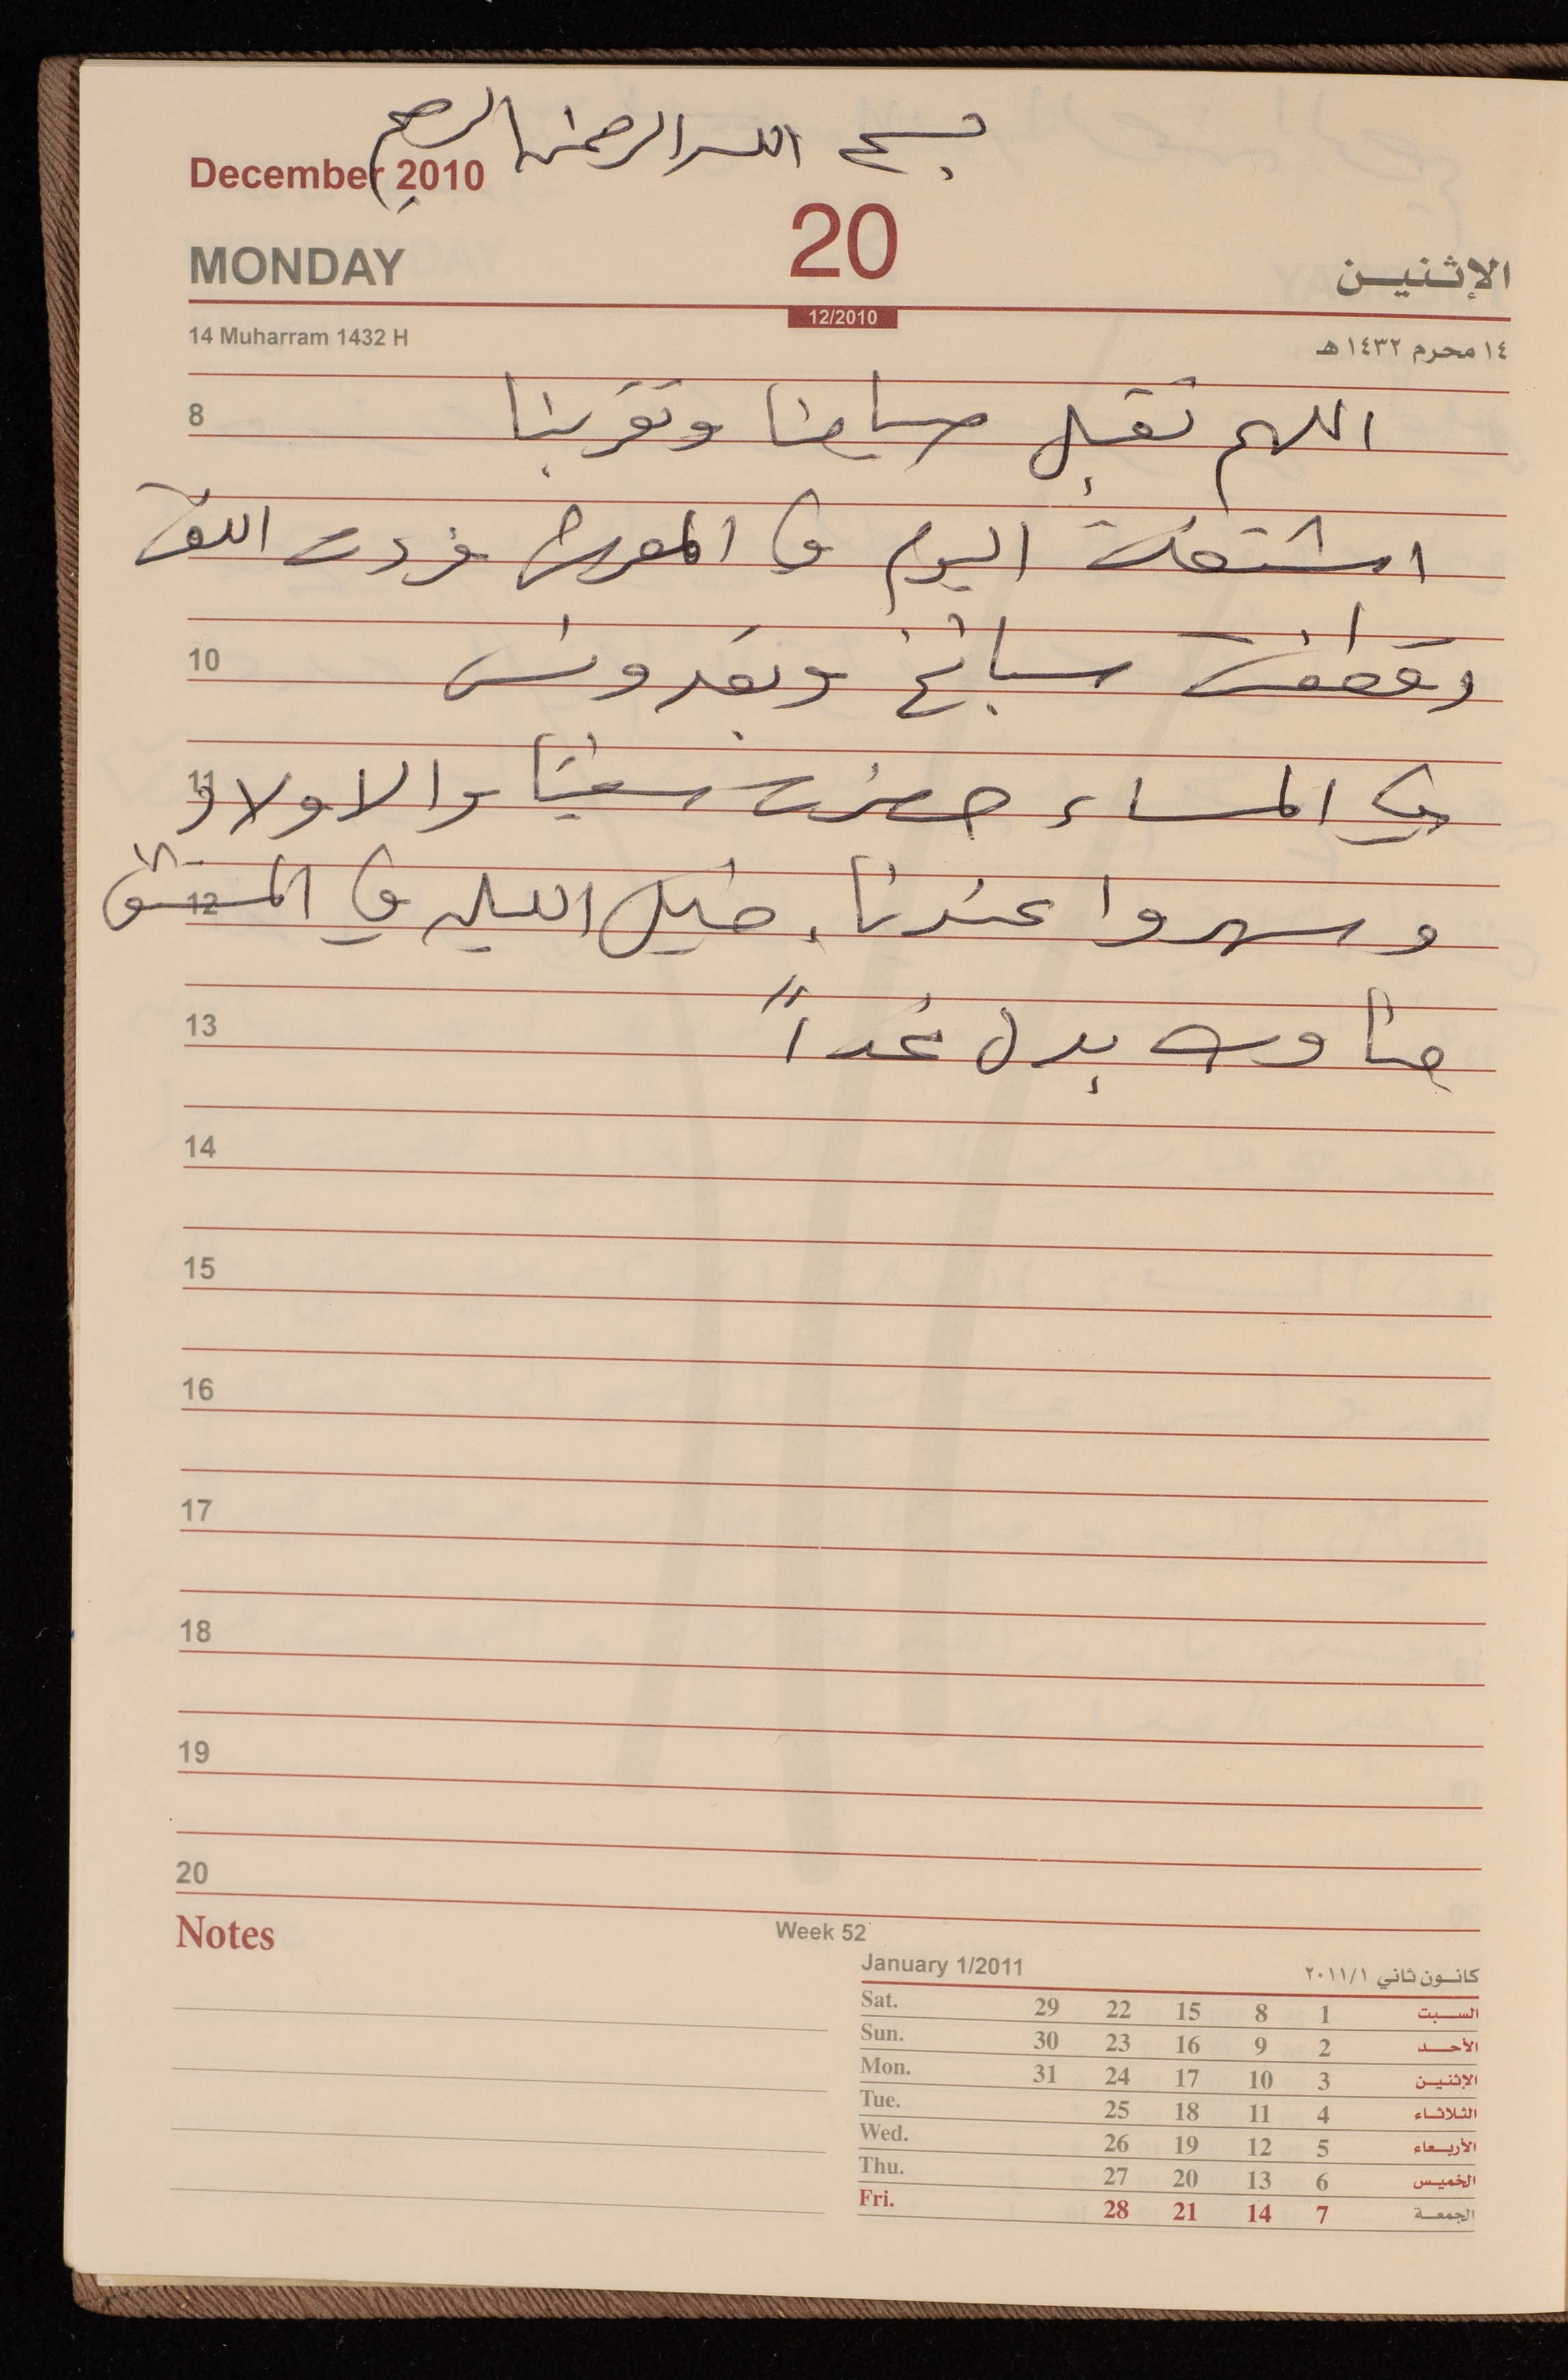 بسم الله الرحمن الرحيم
December 2010
MONDAY 20 الإثنين
12/2010
14 Muharram 1432 H ١٤ محرم ١٤٣٢ هـ
8 اللهم تقبل صيامنا وتقربنا
اشتغلت اليوم في المعرش فردت
10 وقطفت سبانخ وبقدونس
11 في المساء حضرت والاولاد
12 وسهروا عندنا. خليل الليله في
13 مناوب بدل غداً
14
15
16
17
18
19
20
Notes
Week 52
January 1/2011 كانون ثاني ٢٠١١/١
Sat. 29 22 15 8 1 السبت
Sun. 30 23 16 9 2 الأحد
Mon. 31 24 17 10 3 الإثنين
Tue. 25 18 11 4 الثلاثاء
Wed. 26 19 12 5 الأربعاء
Thu. 27 20 13 6 الخميس
Fri. 28 21 14 7 الجمعة